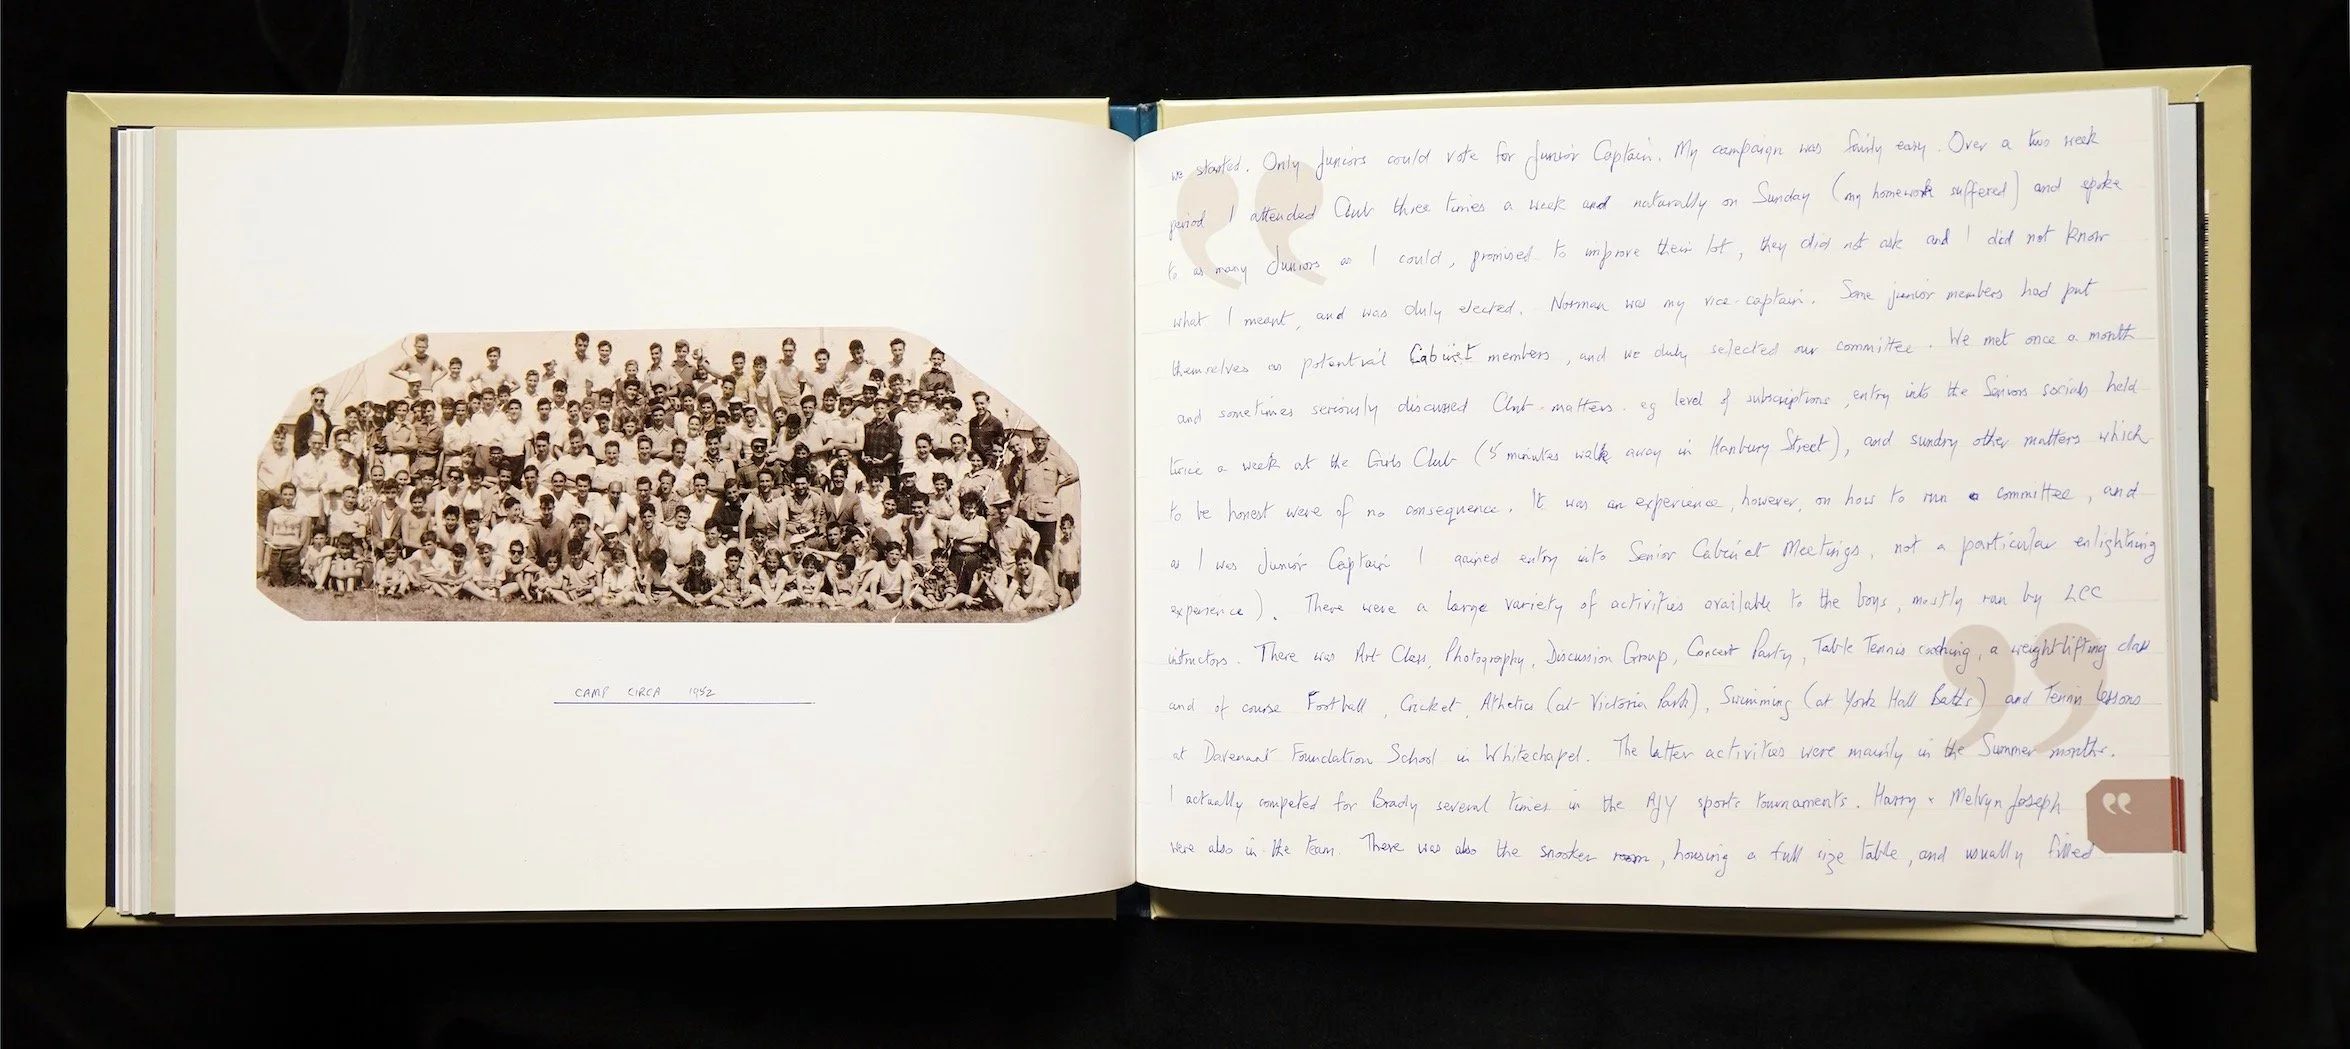 CAMP CIRCA 1952
we started. Only Juniors could vote for Junior Captain. My campaign was fairly easy. Over a two week
period I attended Club three times a week and naturally on Sunday (my homework suffered) and spoke
to as many Juniors as I could, promised to improve their lot, they did not ask and I did not know
what I meant, and was duly elected. Norman was my vice-captain. Some junior members had put
themselves as potential Cabinet members, and we duly selected our committee. We met once a month
and sometimes seriously discussed Club matters. eg level of subscriptions, entry into the Seniors socials held
twice a week at the Girls Club (5 minutes walk away in Hanbury Street), and sundry other matters which
to be honest were of no consequence. It was an experience, however, on how to run a committee, and
as I was Junior Captain I gained entry into Senior Cabinet Meetings, not a particular enlightning
experience). There were a large variety of activities available to the boys, mostly ran by LCC
instructors. There was Art Class, Photography, Discussion Group, Concert Party, Table Tennis coaching, a weightlifting class
and of course Football, Cricket, Athletics (at Victoria Park), Swimming (at York Hall Baths) and Tennis lessons
at Davenant Foundation School in Whitechapel. The latter activities were mainly in the Summer months.
I actually competed for Brady several times in the AJY sports tournaments. Harry + Melvyn Joseph
were also in the team. There was also the snooker room, housing a full size table, and usually filled